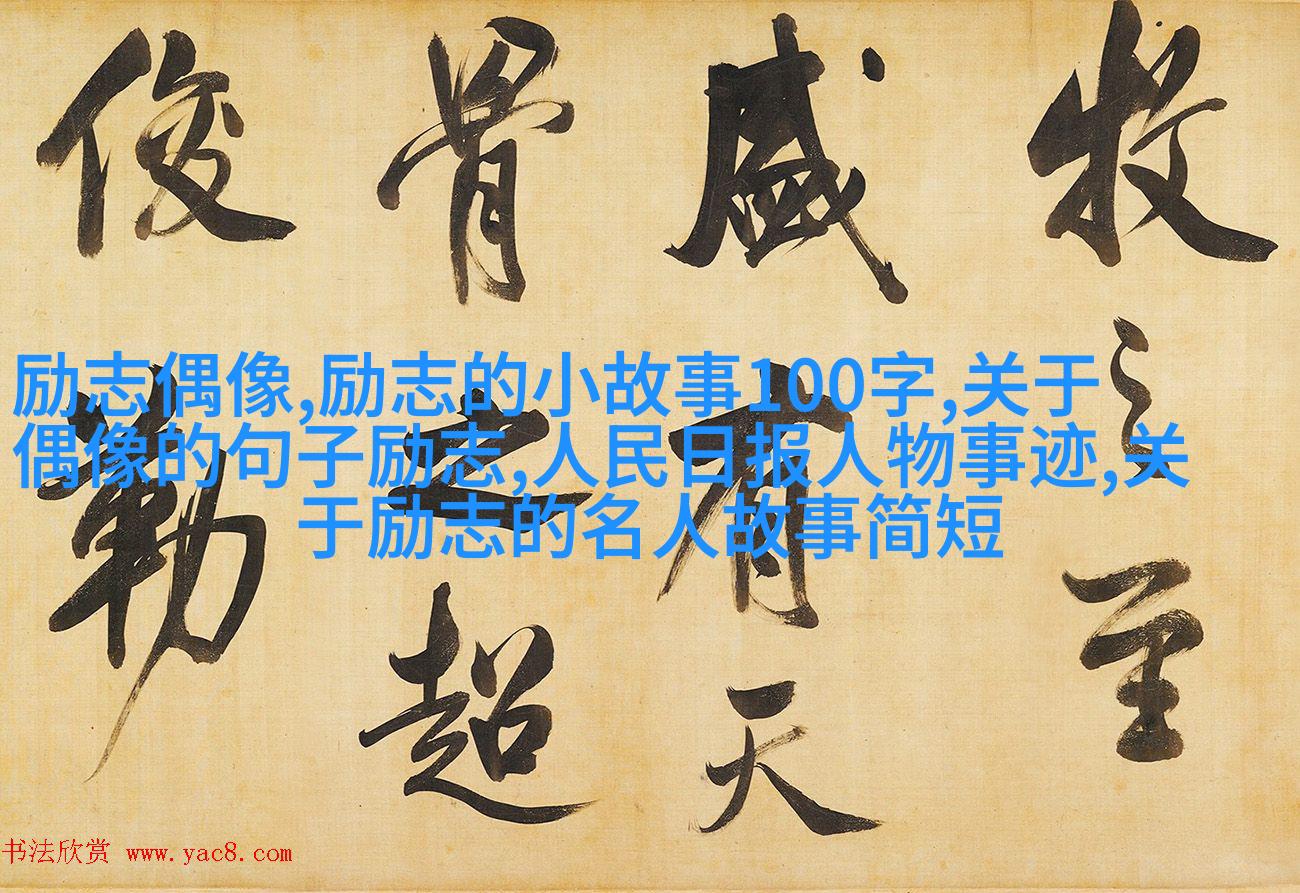 牧之至
盛有天
骨之超
俊勒
励志偶像,励志的小故事100字,关于
偶像的句子励志,人民日报人物事迹,关
于励志的名人故事简短
书法欣赏 www.yac8.com